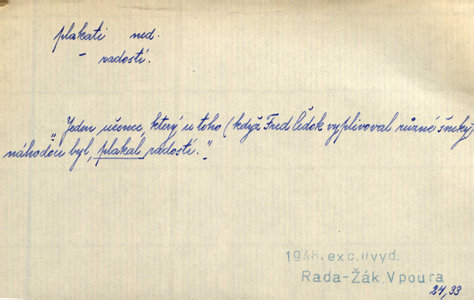 plakati ned.
– radostí.
„Jeden učenec, který u toho (když Fred Lidok vyplivoval různé šneky)
náhodou byl, plakal radostí.“
1948. exc. II vyd.
Rada-Žák Vpoura
24,33